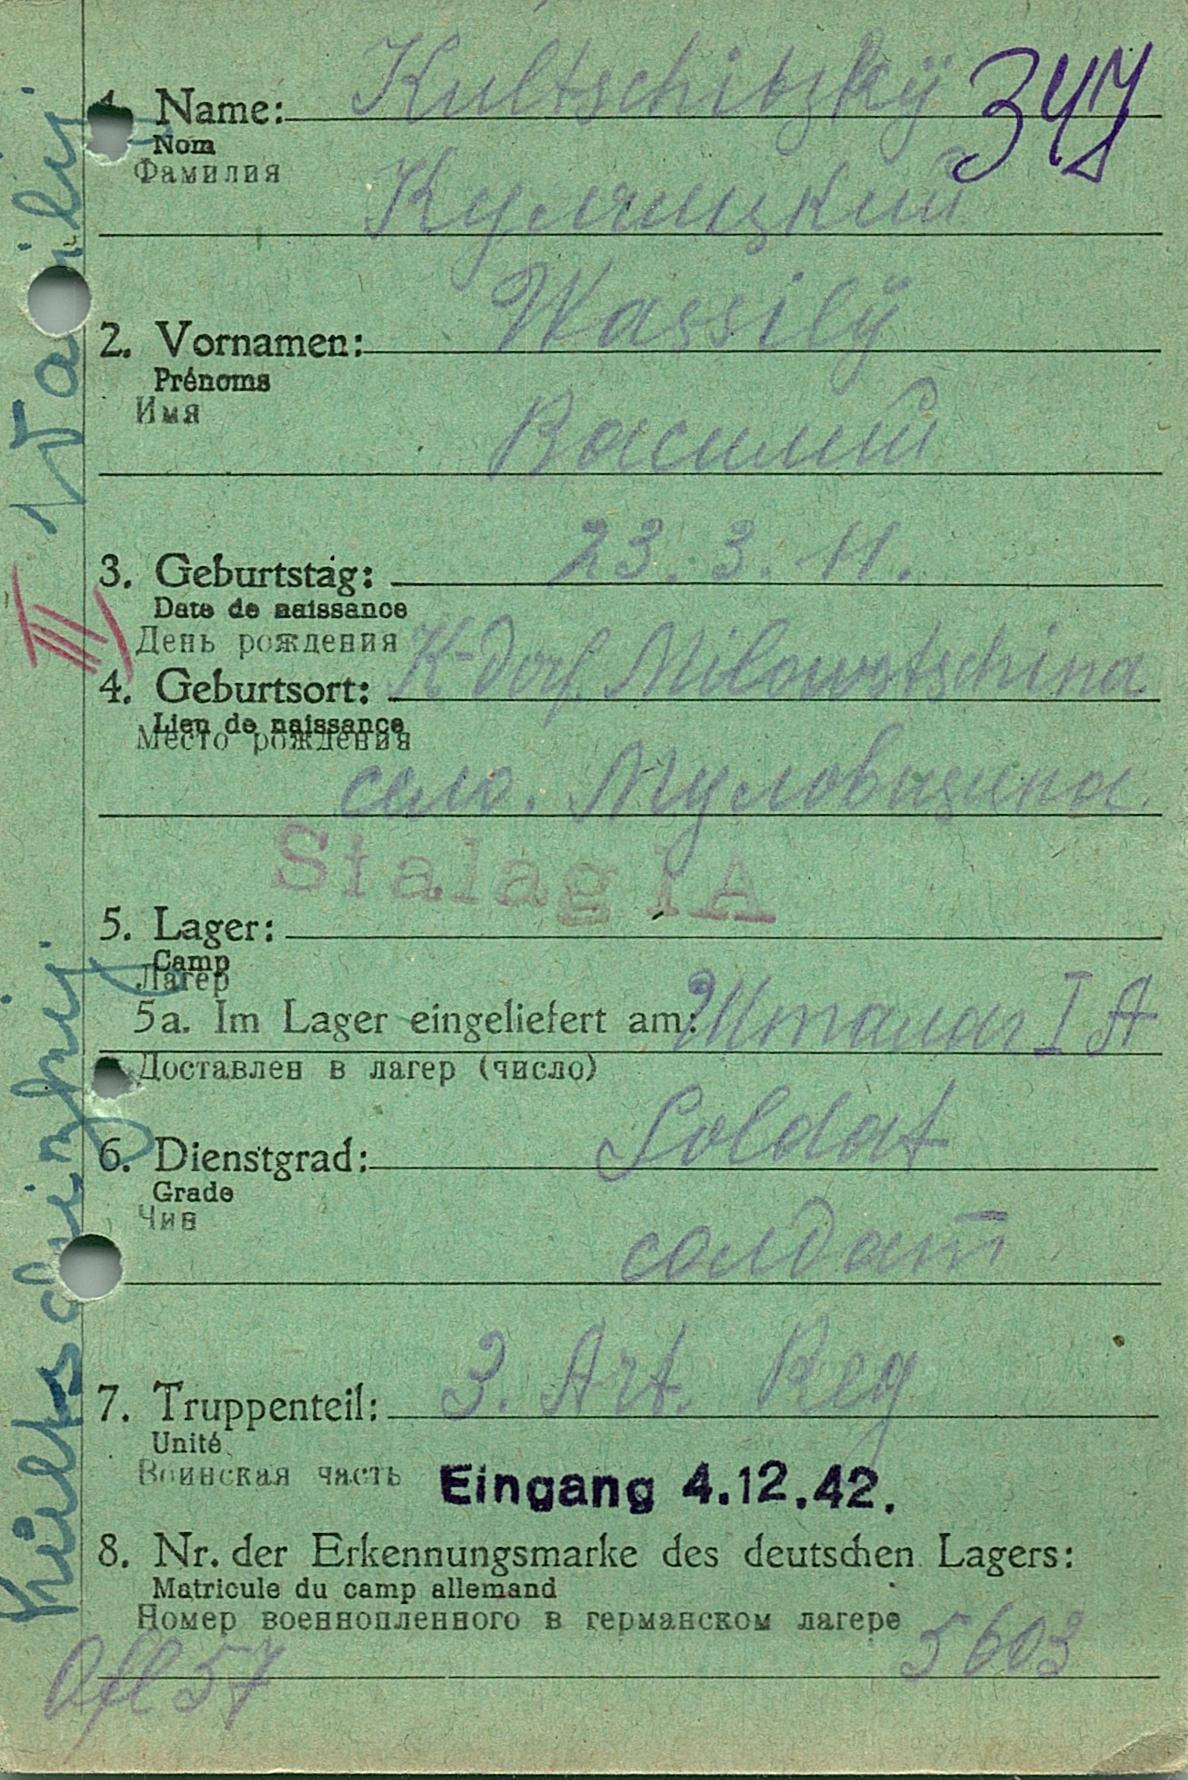 1. Name: Kultschitzkÿ 347
Nom
Фамилия
Кулчицкий
2. Vornamen: Wassilÿ
Prénoms
Имя
Василий
3. Geburtstag: 23. 3. 11.
Date de naissance
День рождения
4. Geburtsort: K-Dorf. Milowotschina
Lieu de naissance
Место рождения
село. Муловщина.
Stalag IA
5. Lager:
Camp
Лагер
5a. Im Lager eingeliefert am: Шталаг I A
Доставлен в лагер (число)
6. Dienstgrad: Soldat
Grade
Чин
солдат
7. Truppenteil: 3. Art. Reg
Unité
Воинская часть
Eingang 4.12.42.
8. Nr. der Erkennungsmarke des deutschen Lagers:
Matricule du camp allemand
Номер военнопленного в германском лагере
5603
Ofl 57
III